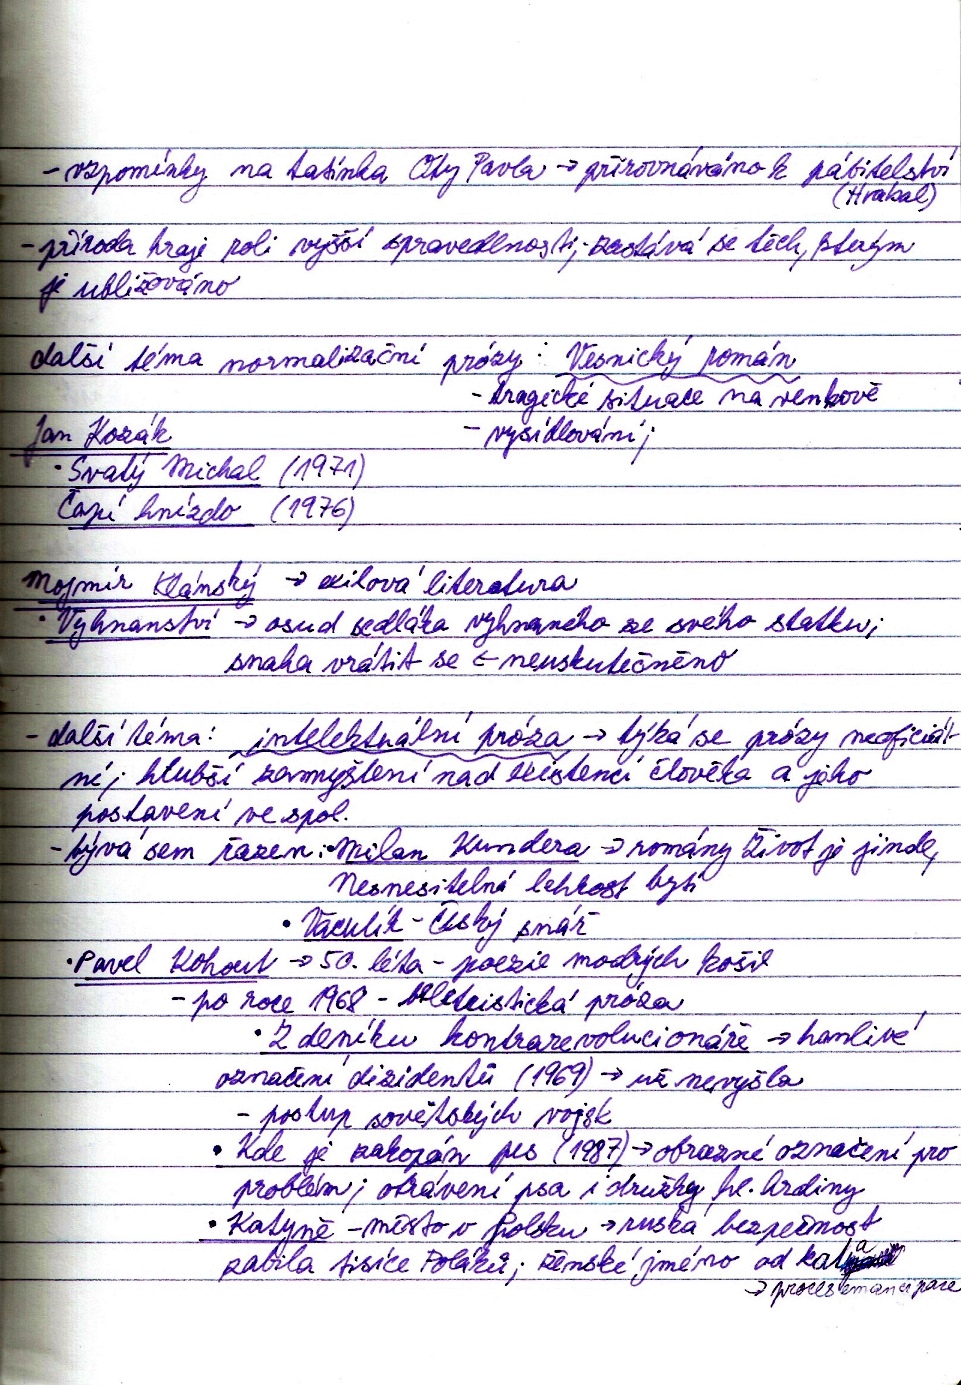 - vzpomínky na tatínka Oty Pavla → přirovnáváno k pábitelství
(Hrabal)
- příroda hraje roli vyšší spravedlnosti; zastává se těch, kterým
je ubližováno
další téma normalizační prózy: Vesnický román
- tragické situace na venkově
- vysídlování;
Jan Kozák
• Svatý Michal (1971)
Čapí hnízdo (1976)
Mojmír Klánský → exilová literatura
• Vyhnanství → osud sedláka vyhnaného ze svého statku;
snaha vrátit se ← neuskutečněno
- další téma: intelektuální próza → týká se prózy neoficiál-
ní; hlubší zamyšlení nad existencí člověka a jeho
postavení ve spol.
- bývá sem řazen: • Milan Kundera → romány Život je jinde,
Nesnesitelná lehkost bytí
• Vaculík - Český snář
• Pavel Kohout → 50. léta - poezie modrých košil
- po roce 1968 - beletristická próza
• Z deníku kontrarevolucionáře → hanlivé
označení disidentů (1969) → už nevyšla
- postup sovětských vojsk
• Kde je zakopán pes (1987) → obrazné označení pro
problém; otrávení psa i družky hl. hrdiny
• Katyně - město v Polsku → ruská bezpečnost
zabila tisíce Poláků; ženské jméno od kata
→ proces emancipace